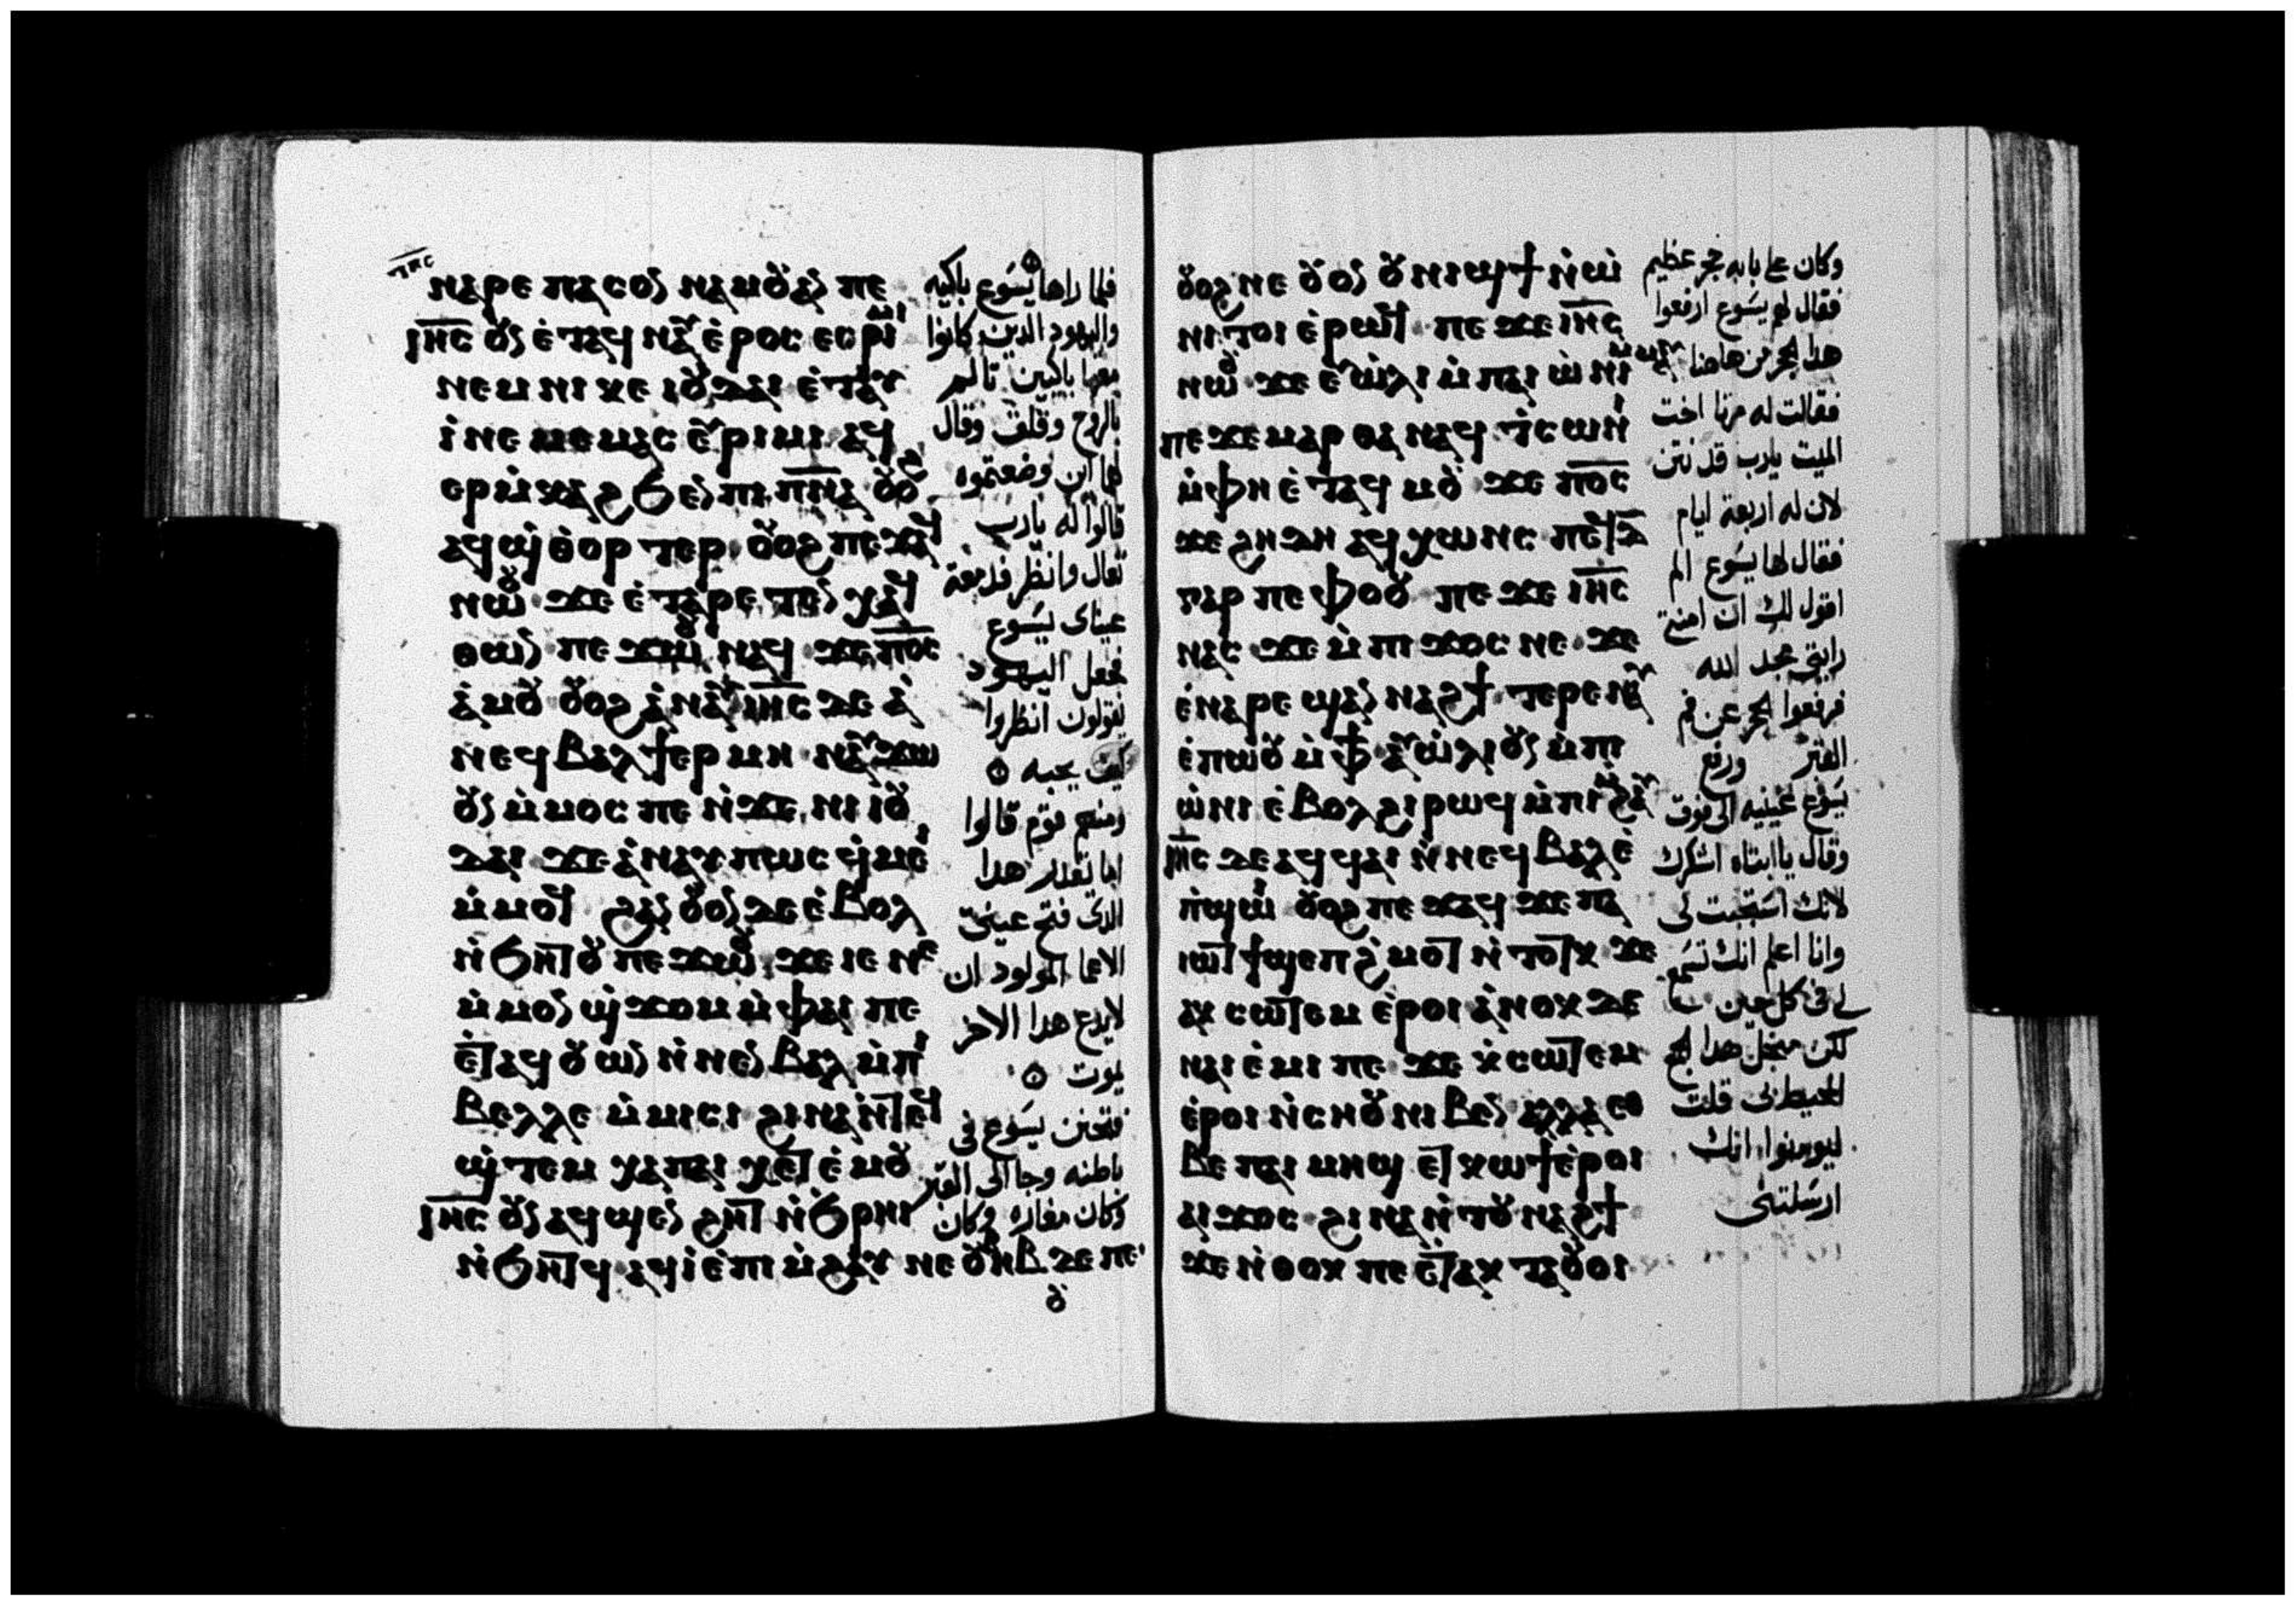 ⲛⲁⲣⲉ ⲡⲁⲥⲟⲛ ⲛⲁⲙⲟⲩⲁⲛ ⲡⲉ
ⲓⲏ̅ⲥ̅ ⲟⲩⲛ ⲉ̀ⲧⲁϥⲛⲁⲩ ⲉ̀ⲣⲟⲥ ⲉⲥⲣⲓⲙⲓ
ⲛⲉⲙ ⲛⲓⲕⲉⲓⲟⲩⲇⲁⲓ ⲉ̀ⲧⲁⲩ
ⲓ̀ ⲛⲉⲙⲉⲙⲁⲥ ⲉⲩⲣⲓⲙⲓ ⲁϥ
ⲉⲣⲙ̀ⲕⲁϩ ϧⲉⲛ ⲡⲓⲡⲛ̅ⲁ̅ ⲟⲩⲟϩ
ⲁϥϣ̀ⲑⲟⲣⲧⲉⲣ ⲟⲩⲟϩ ⲡⲉϫⲁϥ
ⲛⲱⲟⲩ ϫⲉ ⲉ̀ⲧⲁⲣⲉⲧⲉⲛⲭⲁϥ
ⲑⲱⲛ ⲡⲉϫⲱⲟⲩ ⲛⲁϥ ϫⲉ ⲡⲟ̅ⲥ̅
ⲁ̀ⲙⲟⲩ ⲟⲩⲟϩ ⲁ̀ⲛⲁⲩ ⲓⲏ̅ⲥ̅ ⲇⲉ ⲁ̀
ⲛⲉϥⲃⲁⲗ ϯⲉⲣⲙⲏ ⲛⲁⲩϫⲱ
ⲟⲩⲛ ⲙ̀ⲙⲟⲥ ⲡⲉ ⲛ̀ϫⲉ ⲛⲓⲓⲟⲩ
ⲇⲁⲓ ϫⲉ ⲁ̀ⲛⲁⲩ ⲡⲱⲥ ϥ̀ⲙⲉⲓ
ⲙ̀ⲙⲟϥ ϩⲁⲛⲟⲩⲟⲛ ⲇⲉ ⲉ̀ⲃⲟⲗ
ⲛ̀ϧⲏⲧⲟⲩ ⲡⲉϫⲱⲟⲩ ϫⲉ ⲓⲉ ⲛⲉ
ⲙ̀ⲙⲟⲛ ϣ̀ϫⲟⲙ ⲙ̀ⲫⲁⲓ ⲡⲉ
ⲉ̀ⲧⲁϥⲟⲩⲱⲛ ⲛ̀ⲛⲉⲛⲃⲁⲗ ⲙ̀ⲡⲓ
ⲃⲉⲗⲗⲉ ⲙ̀ⲙⲓⲥⲓ ϩⲓⲛⲁ ⲛ̀ⲧⲉϥ
ϣ̀ⲧⲉⲙⲭⲁ ⲡⲁⲓ ⲭⲉⲧ ⲉ̀ⲙⲟⲩ
ⲓⲏ̅ⲥ̅ ⲟⲩⲛ ⲁϥϣⲉⲛϩⲏⲧ ⲛ̀ϧⲣⲏⲓ
ⲛ̀ϧⲏⲧϥ ⲁϥⲓ̀ ⲉ̀ⲡⲓⲙ̀ϩⲁⲩ ⲛⲉ ⲟⲩⲏⲃ ⲇⲉ ⲡⲉ
فلما راها يسوع باكيه
واليهود الدين كانوا
معها باكيين تالم
بالروح وقلق وقال
لها اين وضعتموه
قالوا له يارب
تعال وانظر فدمعة
عيناى يسوع
فجعل اليهود
يقولون انظروا
كيف يحبه
ومنهم قوم قالوا
اما يقدر هدا
الدى فتح عينى
الاعما المولود ان
لايدع هدا الاخر
يموت
فتحنن يسوع فى
باطنه وجا الى القبر
وكان مغاره وكان
ⲟⲩⲟϩ ⲛⲉ ⲟⲩⲟⲛ ⲟⲩⲛⲓϣϯ ⲛ̀ⲱ̀
ⲛⲓ ⲧⲟⲓ ⲉ̀ⲣⲱϥ ⲡⲉϫⲉ ⲓⲏ̅ⲥ̅
ⲛⲱⲟⲩ ϫⲉ ⲉⲩⲱ̀ⲗⲓ ⲙ̀ⲡⲁⲓ ⲱ̀ⲛⲓ
ⲡⲉϫⲉ ⲙⲁⲣⲑⲁ ⲛⲁϥ ⲧ̀ⲥⲱⲛⲓ
ⲙ̀ⲫⲏ ⲉ̀ⲧⲁϥⲙⲟⲩ ϫⲉ ⲡⲟ̅ⲥ̅
ϫⲉ ϩⲏⲇⲏ ⲁϥⲭⲱⲛⲥ ⲡⲉϥⲇ̅
ⲅⲁⲣ ⲡⲉ ⲫⲟⲟⲩ ⲡⲉϫⲉ ⲓⲏ̅ⲥ̅
ⲛⲁⲥ ϫⲉ ⲙ̀ⲡⲓϫⲟⲥ ⲛⲉ ϫⲉ
ⲉ̀ⲛⲁⲣⲉϣⲁⲛⲛⲁϩϯ ⲧⲉⲣⲉⲛⲁⲩ
ⲉ̀ⲡⲱ̀ⲟⲩ ⲙ̀ⲫϯ ⲁⲩⲱ̀ⲗⲓ ⲟⲩⲛ ⲙ̀ⲡⲓ
ⲱ̀ⲛⲓ ⲉ̀ⲃⲟⲗ ϩⲓ ⲣⲱϥ ⲙ̀ⲡⲓⲙ̀ϩⲁⲩ
ⲓⲏ̅ⲥ̅ ⲇⲉ ⲁϥϥⲁⲓ ⲛ̀ⲛⲉϥⲃⲁⲗ ⲉ̀
ⲡ̀ϣⲱⲓ ⲟⲩⲟϩ ⲡⲉϫⲁϥ ϫⲉ ⲡⲁ
ⲓⲱⲧ ϯϣⲉⲡϩ̀ⲙⲟⲧ ⲛ̀ⲧⲟⲧⲕ ϫⲉ
ⲁⲕⲥⲱⲧⲉⲙ ⲉ̀ⲣⲟⲓ ⲁ̀ⲛⲟⲕ ⲇⲉ
ⲛⲁⲓⲉ̀ⲙⲓ ⲡⲉ ϫⲉ ⲕ̀ⲥⲱⲧⲉⲙ
ⲉ̀ⲣⲟⲓ ⲛ̀ⲥⲏⲟⲩ ⲛⲓⲃⲉⲛ ⲁⲗⲗⲁ ⲉⲑ
ⲃⲉ ⲡⲁⲓⲙⲏϣ ⲉⲧⲕⲱϯ ⲉ̀ⲣⲟⲓ
ⲁⲓϫⲟⲥ ϩⲓⲛⲁ ⲛ̀ⲧⲟⲩⲛⲁϩϯ
ϫⲉ ⲛ̀ⲑⲟⲕ ⲡⲉ ⲉ̀ⲧⲁⲕⲧⲁⲟⲩⲟⲓ
وكان على بابه حجر عظيم
فقال لهم يسوع ارفعوا
هدا الحجر من هاهنا
فقالت له مرتا اخت
الميت يارب قد نتن
لان له اربعة ايام
فقال لها يسوع الم
اقول لك ان امنتى
رايتى مجد الله
فرفعوا الحجر عن فم
القبر ورفع
يسوع عينيه الى فوق
وقال يا ابتاه اشكرك
لانك استجبت لى
وانا اعلم انك تسمع
لى فى كل حين
لكن من اجل هدا الجمع
المحيط بى قلت
ليومنوا انك
ارسلتنى